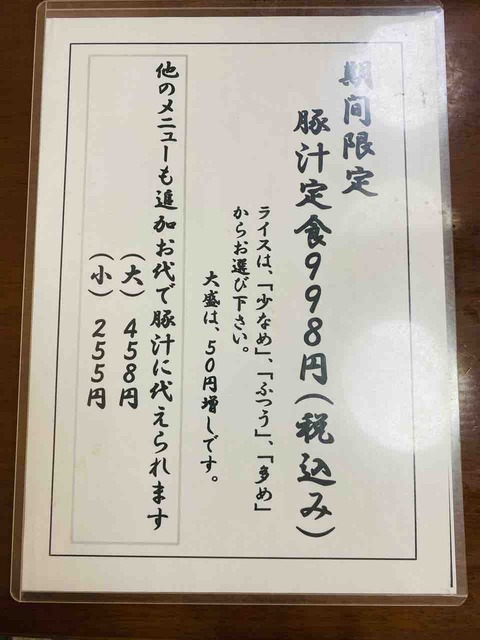 期間限定
豚汁定食998円(税込み)
ライスは、「少なめ」、「ふつう」、「多め」
からお選び下さい。
大盛は、50円増しです。
他のメニューも追加お代で豚汁に代えられます
(大)458円
(小)255円